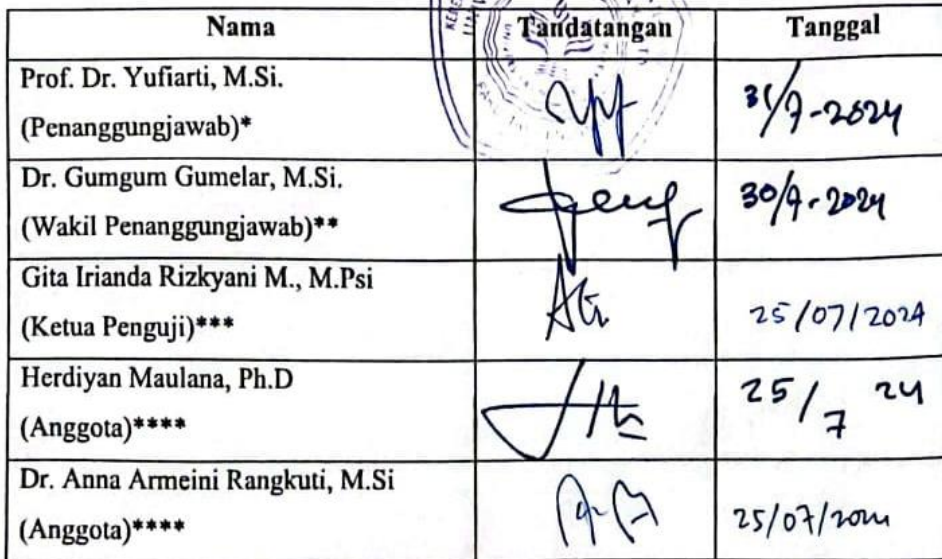 Nama Tandatangan Tanggal
Prof. Dr. Yufiarti, M.Si.
(Penanggungjawab)*
31/7-2024
Dr. Gumgum Gumelar, M.Si.
(Wakil Penanggungjawab)**
30/7-2024
Gita Irianda Rizkyani M., M.Psi
(Ketua Penguji)***
25/07/2024
Herdiyan Maulana, Ph.D
(Anggota)****
25/7 24
Dr. Anna Armeini Rangkuti, M.Si
(Anggota)****
25/07/2024